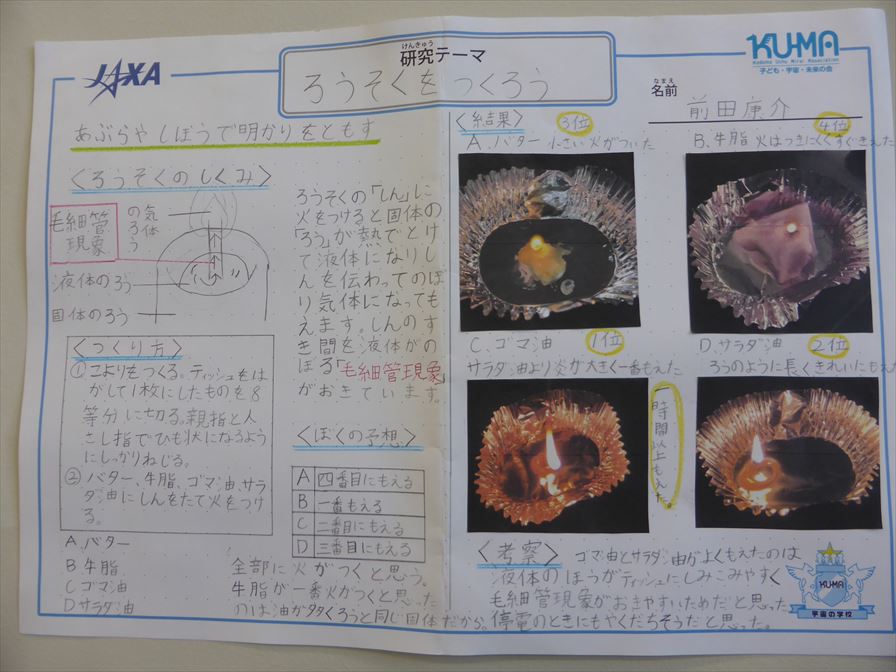 JAXA
けんきゅう
研究テーマ
ろうそくをつくろう
KU-MA
Kodomo Uchu Mirai Association
子ども・宇宙・未来の会
なまえ
名前
前田康介
あぶらや しぼうで明かりをともす
〈ろうそくのしくみ〉
毛細管
現象
気体
のろう
液体のろう
固体のろう
ろうそくの「しん」に
火をつけると固体の
「ろう」が熱でとけ
て液体になりし
んを伝わってのぼ
り気体になっても
えます。しんのす
き間を液体がの
ぼる「毛細管現象」
がおきています。
〈つくり方〉
①こよりをつくる。ティッシュをは
がして1枚にしたものを8
等分に切る。親指と人
さし指でひも状になるよう
にしっかりねじる。
②バター、牛脂、ゴマ油、サラ
ダ油にしんをたて火をつけ
る。
A.バター
B 牛脂
C ゴマ油
D サラダ油
〈ぼくの予想〉
A 四番目にもえる
B 一番もえる
C 二番目にもえる
D 三番目にもえる
全部に火がつくと思う。
牛脂が一番火がつくと思った
のは油が多くろうと同じ固体だから。
〈結果〉
3位
A、バター 小さい火がついた
4位
B、牛脂 火はつきにくくすぐきえた
C、ゴマ油 1位
サラダ油より炎が大きく一番もえた
一時間以上もえた。
D、サラダ油 2位
ろうのように長くきれいにもえた
〈考察〉 ゴマ油とサラダ油がよくもえたのは
液体のほうがティッシュにしみこみやすく
毛細管現象がおきやすいためだと思った
停電のときにもやくだちそうだと思った。
KU-MA
宇宙の学校